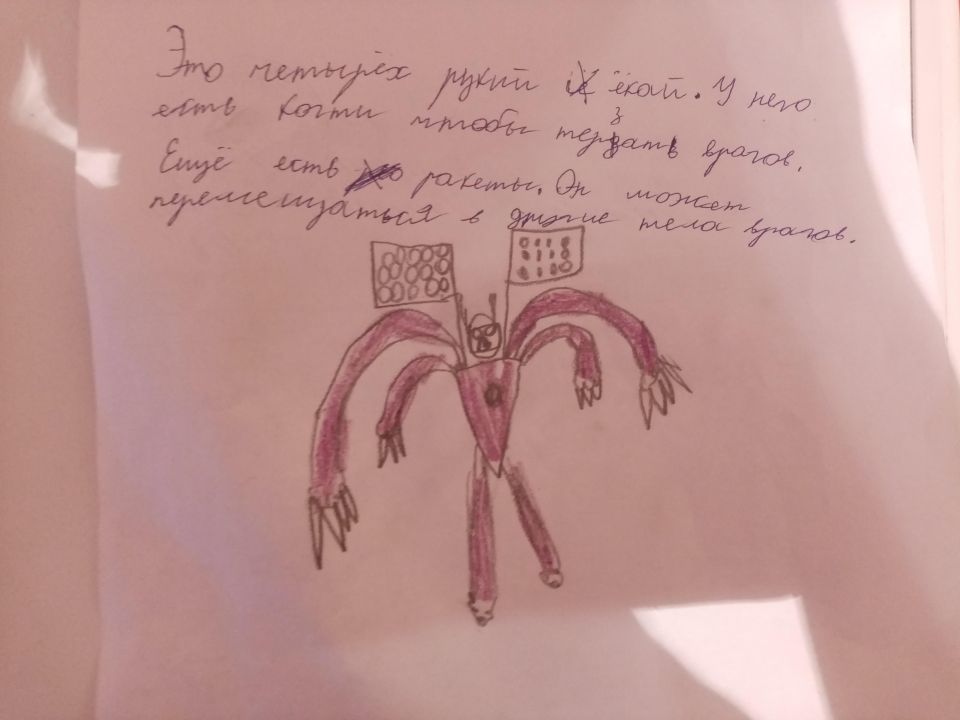 Это четырёх рукий ёкай. У него
есть когти чтобы терзать врагов.
Ещё есть ракеты. Он может
перемещаться в другие тела врагов.